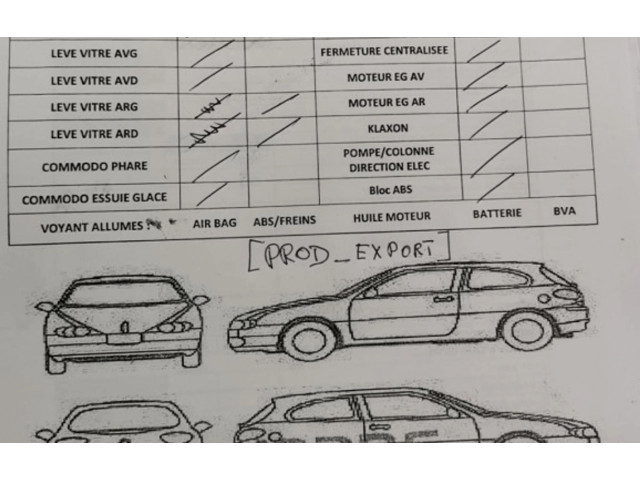 LEVE VITRE AVG FERMETURE CENTRALISEE
LEVE VITRE AVD MOTEUR EG AV
LEVE VITRE ARG MOTEUR EG AR
LEVE VITRE ARD KLAXON
COMMODO PHARE POMPE/COLONNE
DIRECTION ELEC
COMMODO ESSUIE GLACE Bloc ABS
VOYANT ALLUMES : AIR BAG ABS/FREINS HUILE MOTEUR BATTERIE BVA
[PROD_EXPORT]